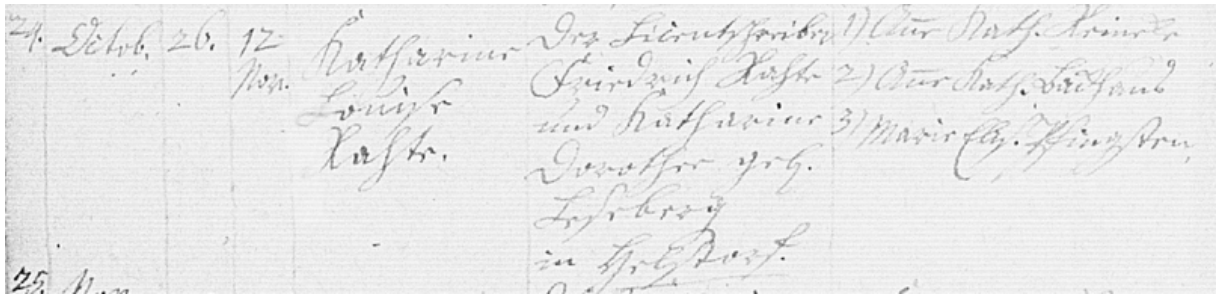 24. Octob. 26. 12 Nov.
Katharine
Louise
Rahte.
Der Licentschreiber
Friedrich Rahte
und Katharine
Dorothee geb.
Leseberg
in Helstorf.
1) Añe Kath. Reineke
2) Añe Kath. Backhaus
3) Marie Elis. Pfingsten
25. Nov.